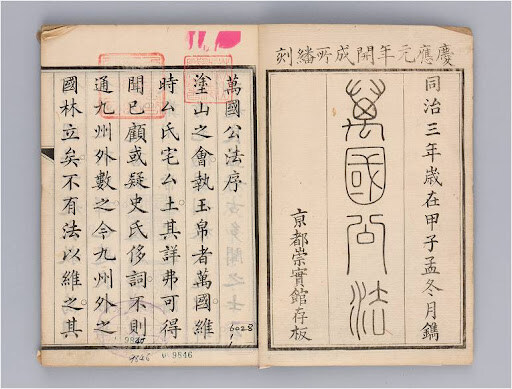 慶應元年開成所繙刻
同治三年歲在甲子孟冬月鐫
萬國公法
亰都崇實館存板
萬國公法序
塗山之會執玉帛者萬國維
時厶氏宅厶土其詳弗可得
聞已顧或疑史氏侈詞不則
通九州外數之今九州外之
國林立矣不有法以維之其
6028
1
9846
9846